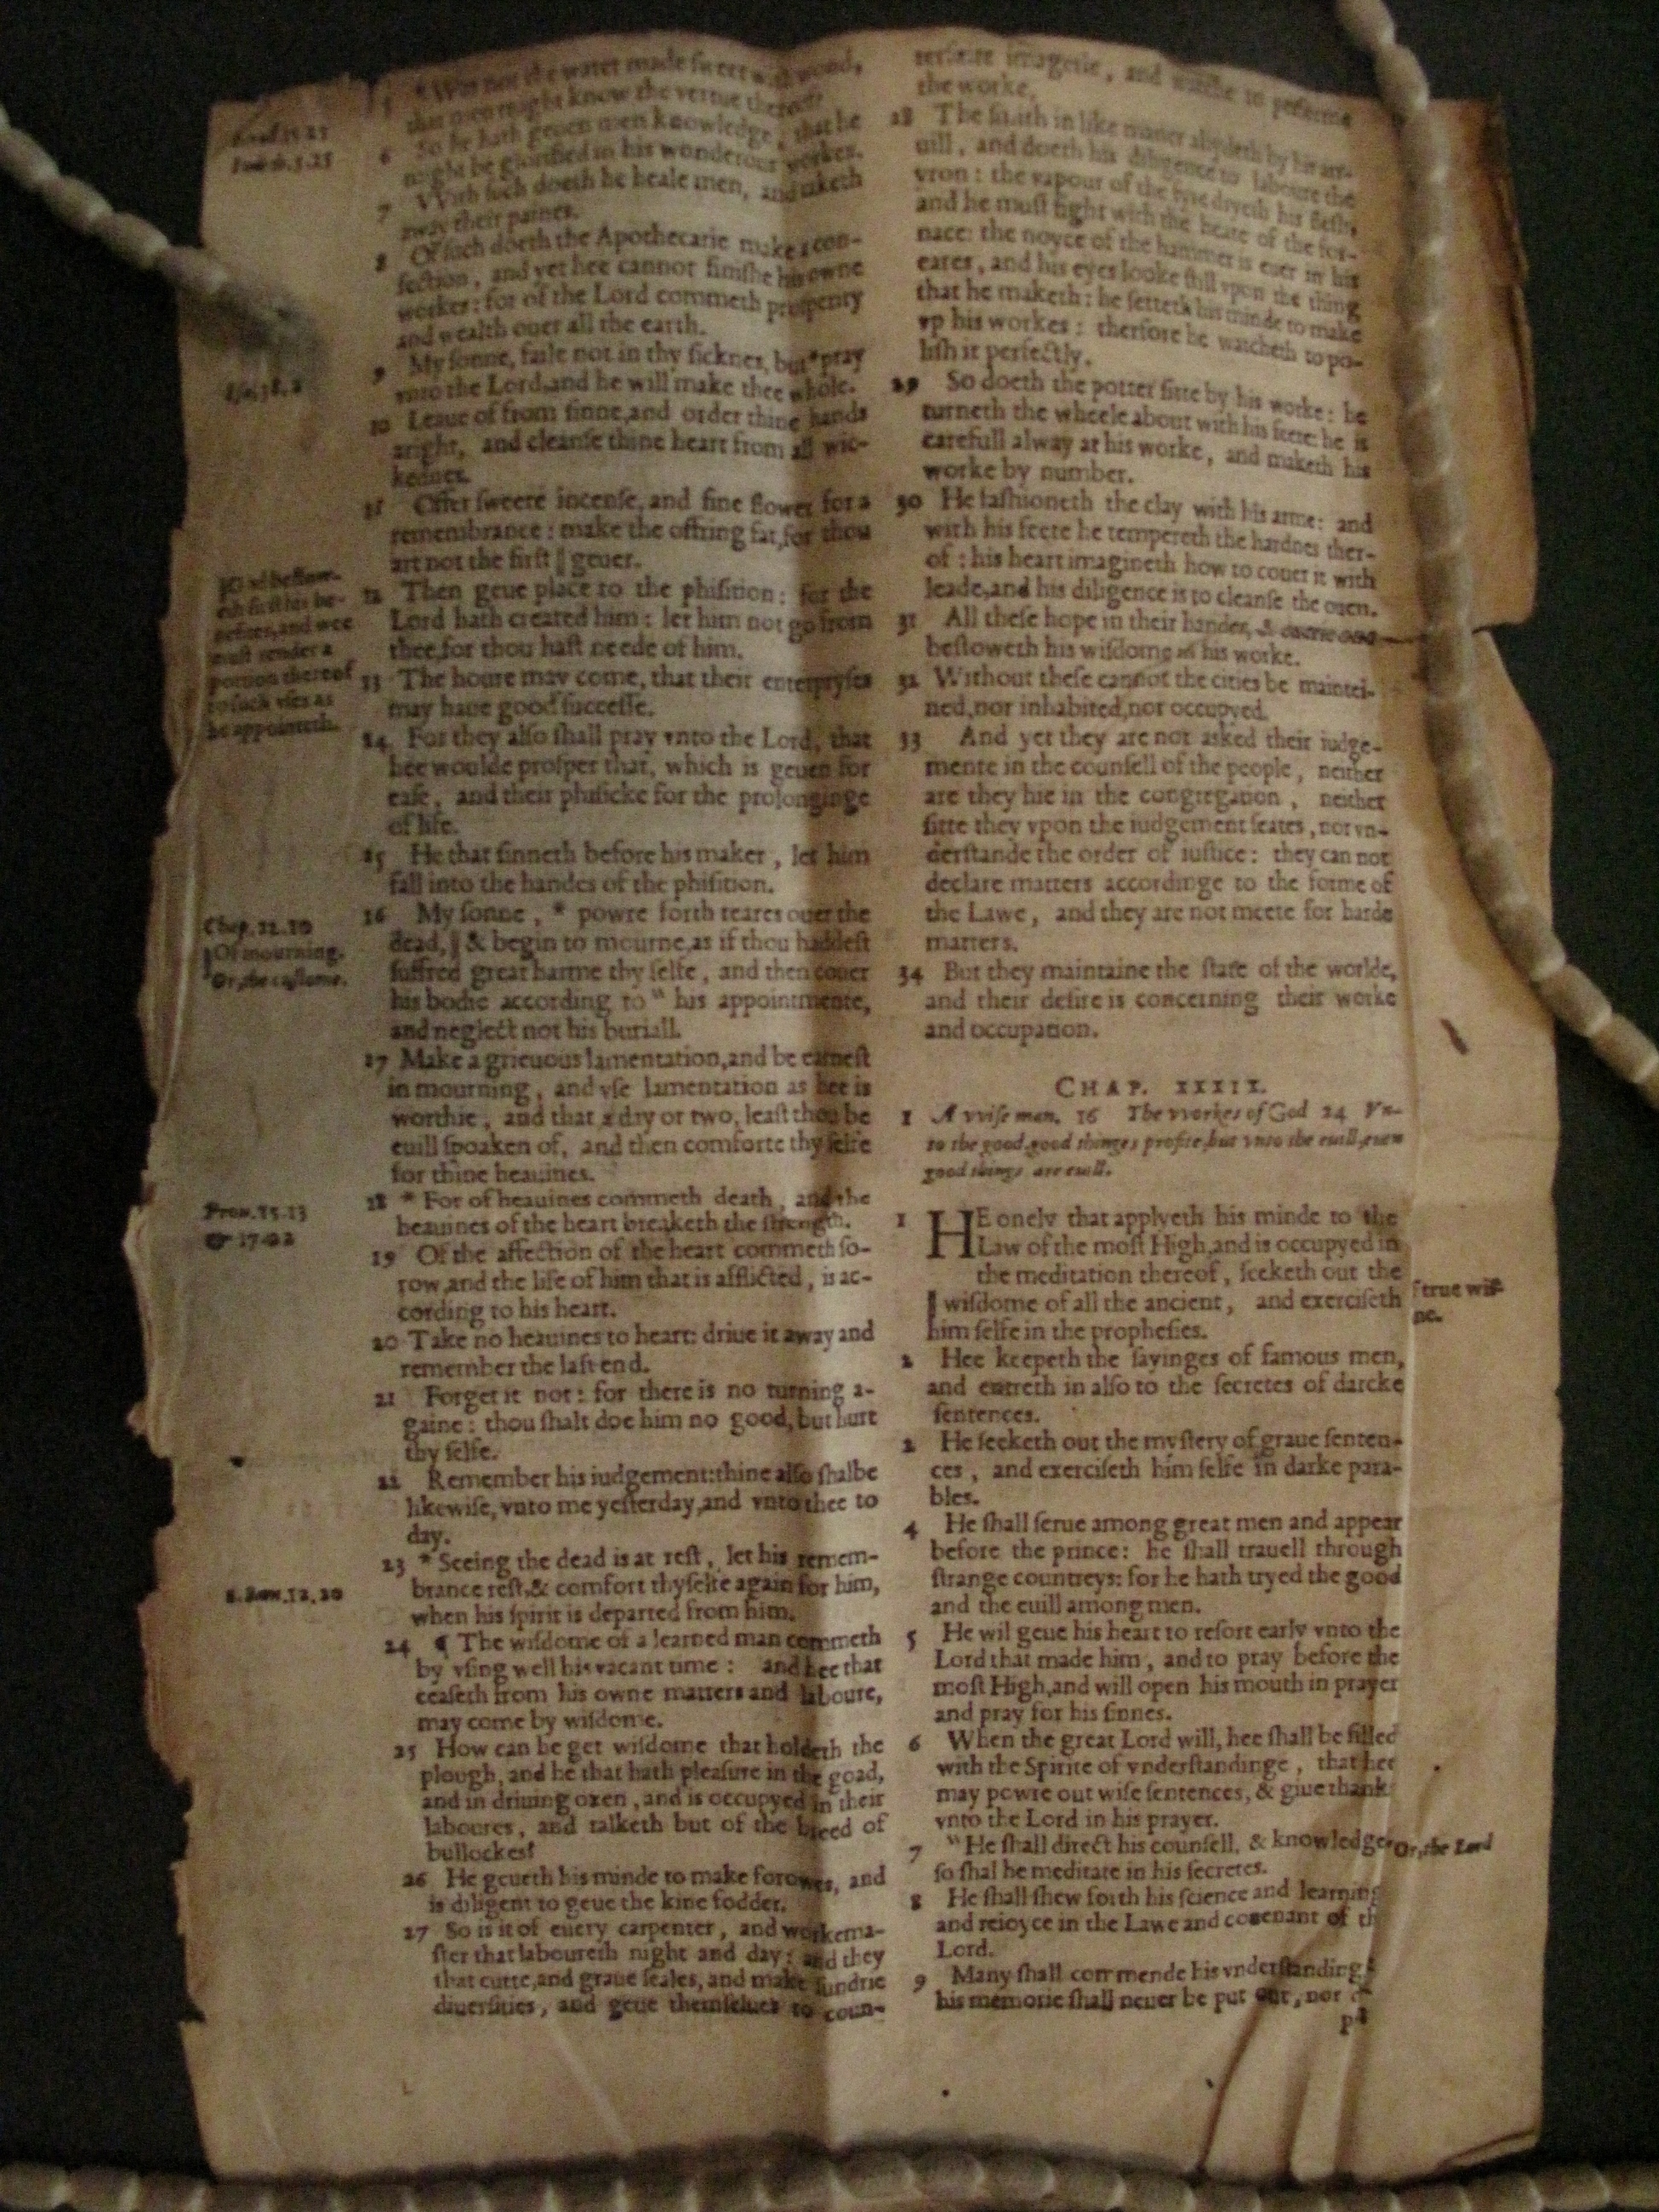 5 *Was not the water made sweet with wood,
that men might know the vertue thereof?
6 So he hath geuen men knowledge, that he
might be glorified in his wonderous workes.
7 VVith such doeth he heale men, and taketh
away their paines.
8 Of such doeth the Apothecarie make a con-
fection, and yet hee cannot finishe his owne
workes: for of the Lord commeth prosperity
and wealth ouer all the earth.
9 My sonne, faile not in thy sicknes, but *pray
vnto the Lord, and he will make thee whole.
10 Leaue of from sinne, and order thine hands
aright, and cleanse thine heart from all wic-
kednes.
11 Offer sweete incense, and fine flower for a
remembrance: make the offring fat, for thou
art not the first ‖ geuer.
12 Then geue place to the phisition: for the
Lord hath created him: let him not go from
thee, for thou hast neede of him.
13 The houre may come, that their enterpryses
may haue good successe.
14 For they also shall pray vnto the Lord, that
hee woulde prosper that, which is geuen for
ease, and their phisicke for the prolonginge
of life.
15 He that sinneth before his maker, let him
fall into the handes of the phisition.
16 My sonne, * powre forth teares ouer the
dead, ‖ & begin to mourne, as if thou haddest
suffred great harme thy selfe, and then couer
his bodie according to " his appointmente,
and neglect not his buriall.
17 Make a grieuous lamentation, and be earnest
in mourning, and vse lamentation as hee is
worthie, and that a day or two, least thou be
euill spoaken of, and then comforte thy selfe
for thine heauines.
18 * For of heauines commeth death, and the
heauines of the heart breaketh the strength.
19 Of the affection of the heart commeth so-
row, and the life of him that is afflicted, is ac-
cording to his heart.
20 Take no heauines to heart: driue it away and
remember the last end.
21 Forget it not: for there is no turning a-
gaine: thou shalt doe him no good, but hurt
thy selfe.
22 Remember his iudgement: thine also shalbe
likewise, vnto me yesterday, and vnto thee to
day.
23 * Seeing the dead is at rest, let his remem-
brance rest, & comfort thyselfe again for him,
when his spirit is departed from him.
24 ¶ The wisdome of a learned man commeth
by vsing well his vacant time: and hee that
ceaseth from his owne matters and laboure,
may come by wisdome.
25 How can he get wisdome that holdeth the
plough, and he that hath pleasure in the goad,
and in driuing oxen, and is occupyed in their
laboures, and talketh but of the breed of
bullockes?
26 He geueth his minde to make forowes, and
is diligent to geue the kine fodder.
27 So is it of euery carpenter, and workema-
ster that laboureth night and day: and they
that cutte, and graue seales, and make sundrie
diuersities, and geue themselues to coun-
Exod.15.25
Iudith.5.15
Isa.38.2
‖God bestow-
eth first his be-
nefites, and wee
must render a
portion thereof
to such vses as
he appointeth.
Chap.22.10
‖Of mourning.
Or, the custome.
Prou.15.13
& 17.22
2.Sam.12.20
terfaite imagerie, and watche to performe
the worke.
28 The smith in like maner abydeth by his an-
uill, and doeth his diligence to laboure the
yron: the vapour of the fyre dryeth his flesh,
and he must fight with the heate of the for-
nace: the noyce of the hammer is euer in his
eares, and his eyes looke still vpon the thing
that he maketh: he setteth his minde to make
vp his workes: therfore he watcheth to po-
lish it perfectly.
29 So doeth the potter sitte by his worke: he
turneth the wheele about with his feete: he is
carefull alway at his worke, and maketh his
worke by number.
30 He fashioneth the clay with his arme: and
with his feete he tempereth the hardnes ther-
of: his heart imagineth how to couer it with
leade, and his diligence is to cleanse the ouen.
31 All these hope in their handes, & euerie one
bestoweth his wisdome in his worke.
32 Without these cannot the cities be maintei-
ned, nor inhabited, nor occupyed.
33 And yet they are not asked their iudge-
mente in the counsell of the people, neither
are they hie in the congregation, neither
sitte they vpon the iudgement seates, nor vn-
derstande the order of iustice: they can not
declare matters accordinge to the forme of
the Lawe, and they are not meete for harde
matters.
34 But they maintaine the state of the worlde,
and their desire is concerning their worke
and occupation.
CHAP. XXXIX.
1 A vvise man. 16 The vvorkes of God 24 Vn-
to the good, good thinges profite, but vnto the euill, euen
good things are euill.
1 HE onely that applyeth his minde to the
Law of the most High, and is occupyed in
the meditation thereof, seeketh out the
‖ wisdome of all the ancient, and exerciseth
him selfe in the prophesies.
2 Hee keepeth the sayinges of famous men,
and entreth in also to the secretes of darcke
sentences.
3 He seeketh out the mystery of graue senten-
ces, and exerciseth him selfe in darke para-
bles.
4 He shall serue among great men and appear
before the prince: he shall trauell through
strange countreys: for he hath tryed the good
and the euill among men.
5 He wil geue his heart to resort early vnto the
Lord that made him, and to pray before the
most High, and will open his mouth in prayer
and pray for his sinnes.
6 When the great Lord will, hee shall be filled
with the Spirite of vnderstandinge, that hee
may powre out wise sentences, & giue thank
vnto the Lord in his prayer.
7 "He shall direct his counsell, & knowledge
so shal he meditate in his secretes.
8 He shall shew forth his science and learning
and reioyce in the Lawe and couenant of th
Lord.
9 Many shall commende his vnderstanding
his memorie shall neuer be put out, nor
true wis-
Or, the Lord